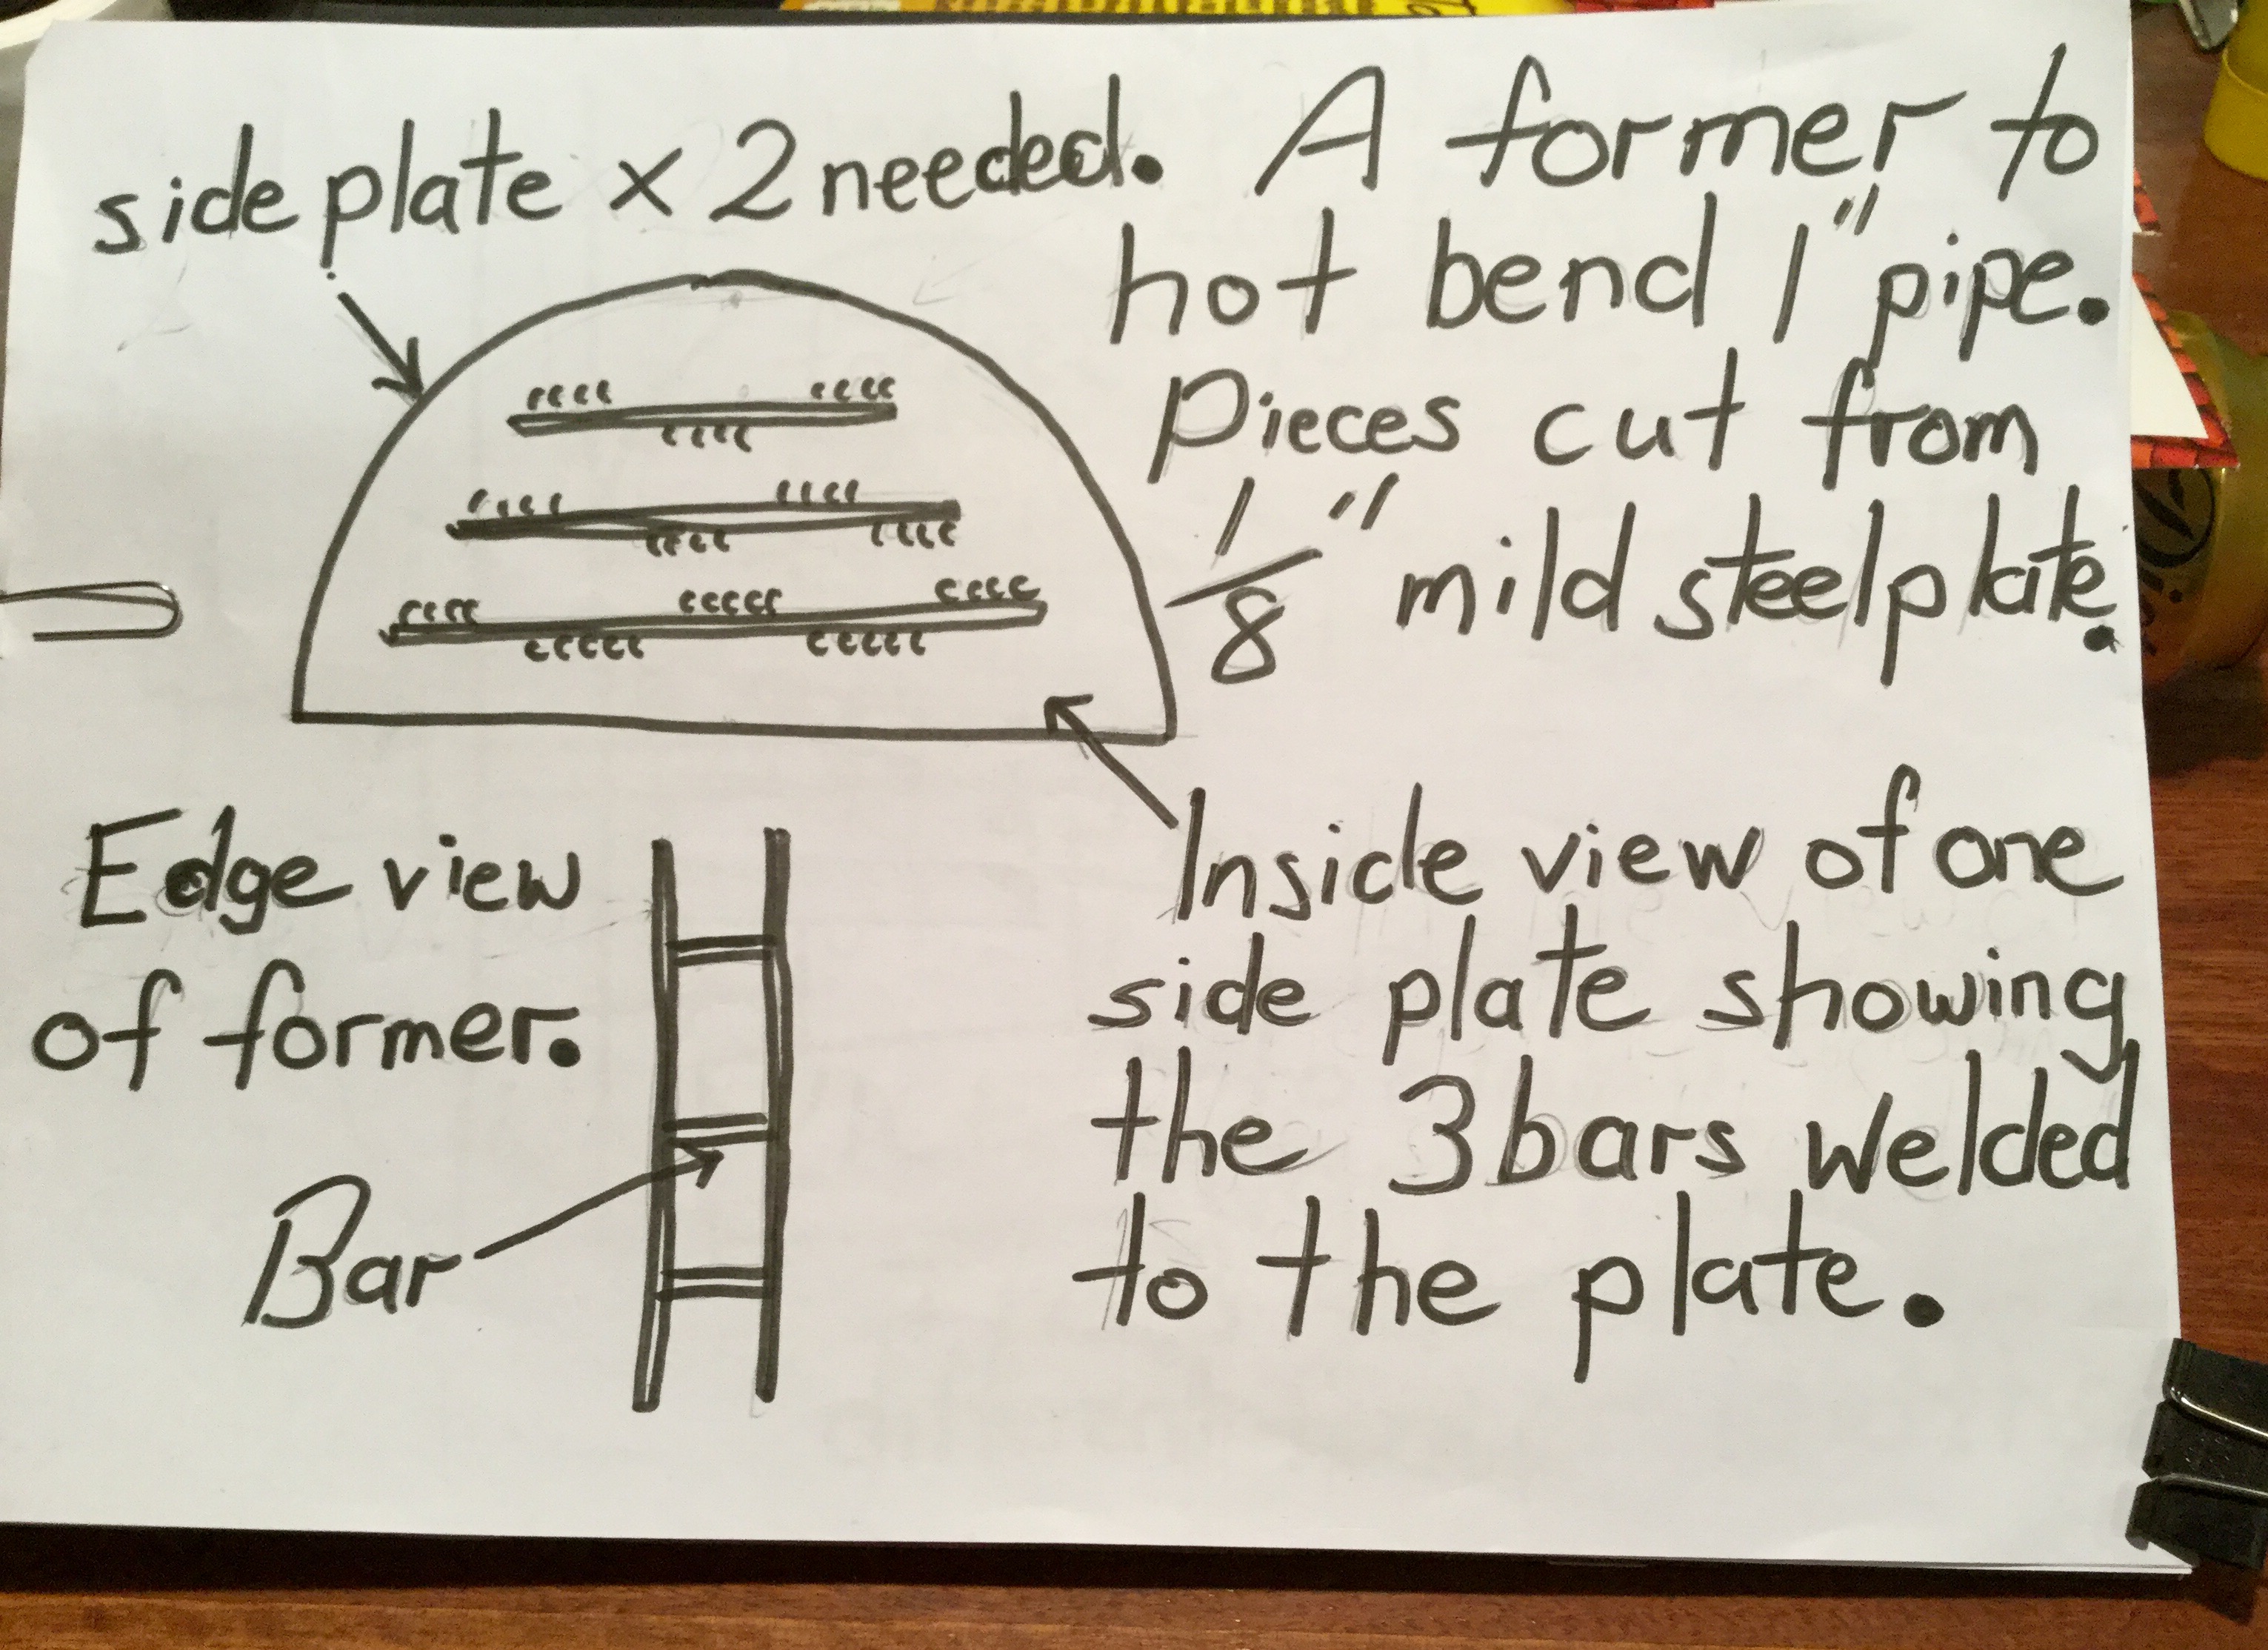 side plate x 2 needed.
A former to
hot bend 1" pipe.
Pieces cut from
1/8" mild steel plate.
Inside view of one
side plate showing
the 3 bars welded
to the plate.
Edge view
of former.
Bar